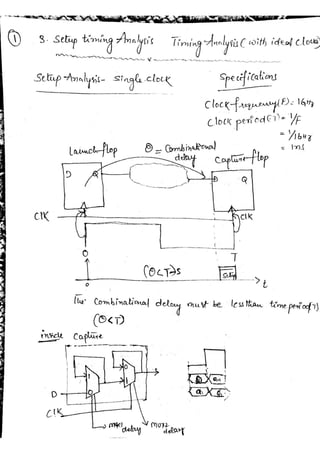 ① 3. Setup timing Analysis Timing Analysis (with ideal clocks)
Setup Analysis - single clock Specifications
Clock frequency (F) = 1GHz
Clock period (T) = 1/F
= 1/1GHz
= 1ns
Launch flop Θ = Combinational delay Capture flop
D Q D Q
Clk Clk
0 T
0 (Θ<T)
t
The Combinational delay must be less than time period (T)
(Θ<T)
inside Capture
D
Clk
mux1 delay mux2 delay